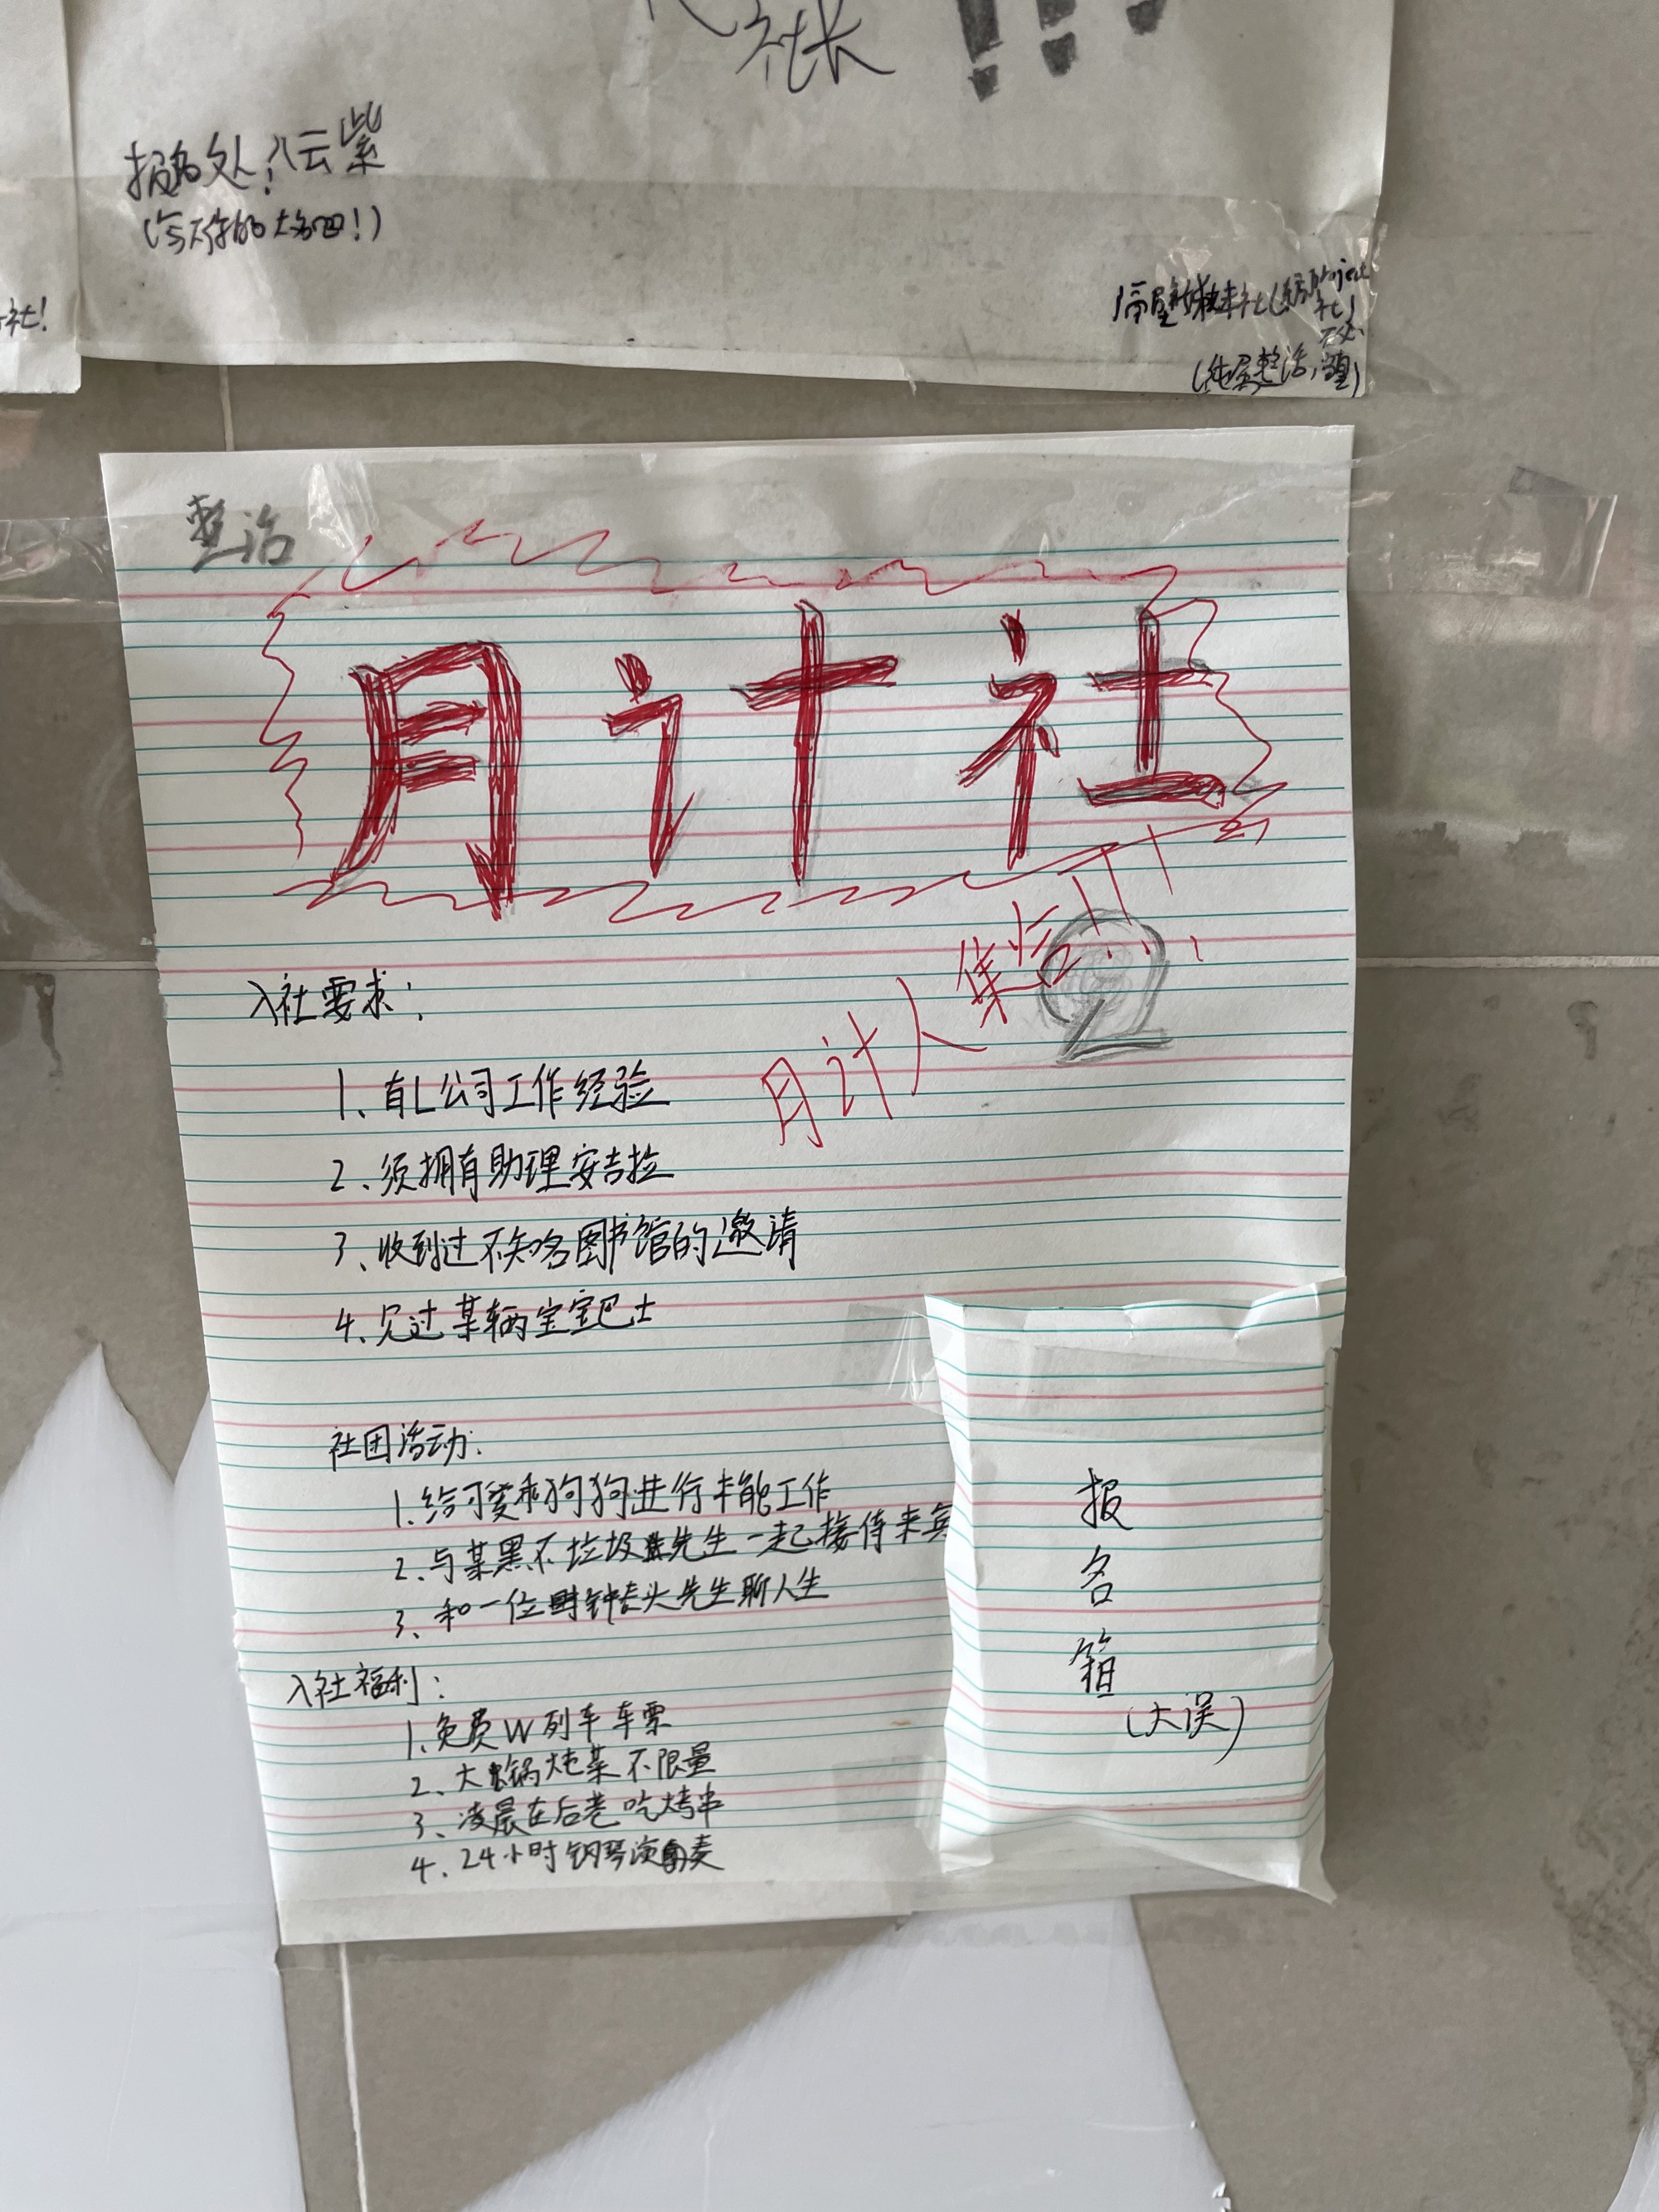 社长!!!
报名处:八云紫
(写下你的大名吧!)
社!
隔壁
(纯属整活,
整活
月计社
月计人集合!!!
入社要求:
1、有L公司工作经验
2、须拥有助理安吉拉
3、收到过不知名图书馆的邀请
4、见过某辆宝宝巴士
社团活动:
1.给可爱乖狗狗进行本能工作
2、与某黑不垃圾先生一起接待来宾
3、和一位时钟表头先生聊人生
入社福利:
1.免费W列车车票
2、大锅炖菜不限量
3、凌晨在后巷吃烤串
4、24小时钢琴演奏
报
名
箱
(大误)